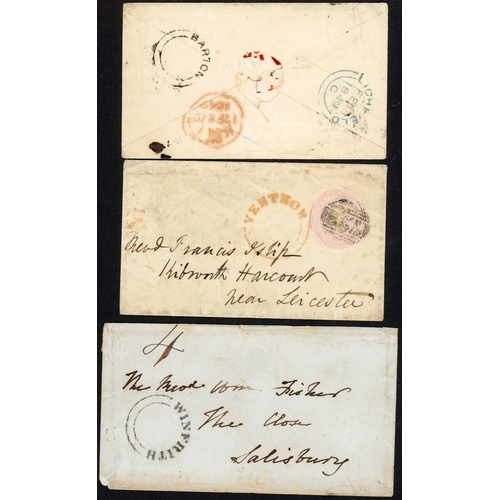 BARTON
LICHFIELD
FE
1849
C
VENTNOR
Revd Francis Islip
Kibworth Harcourt
near Leicester
4
The Revd Wm Fisher
The Close
Salisbury
WINFRITH